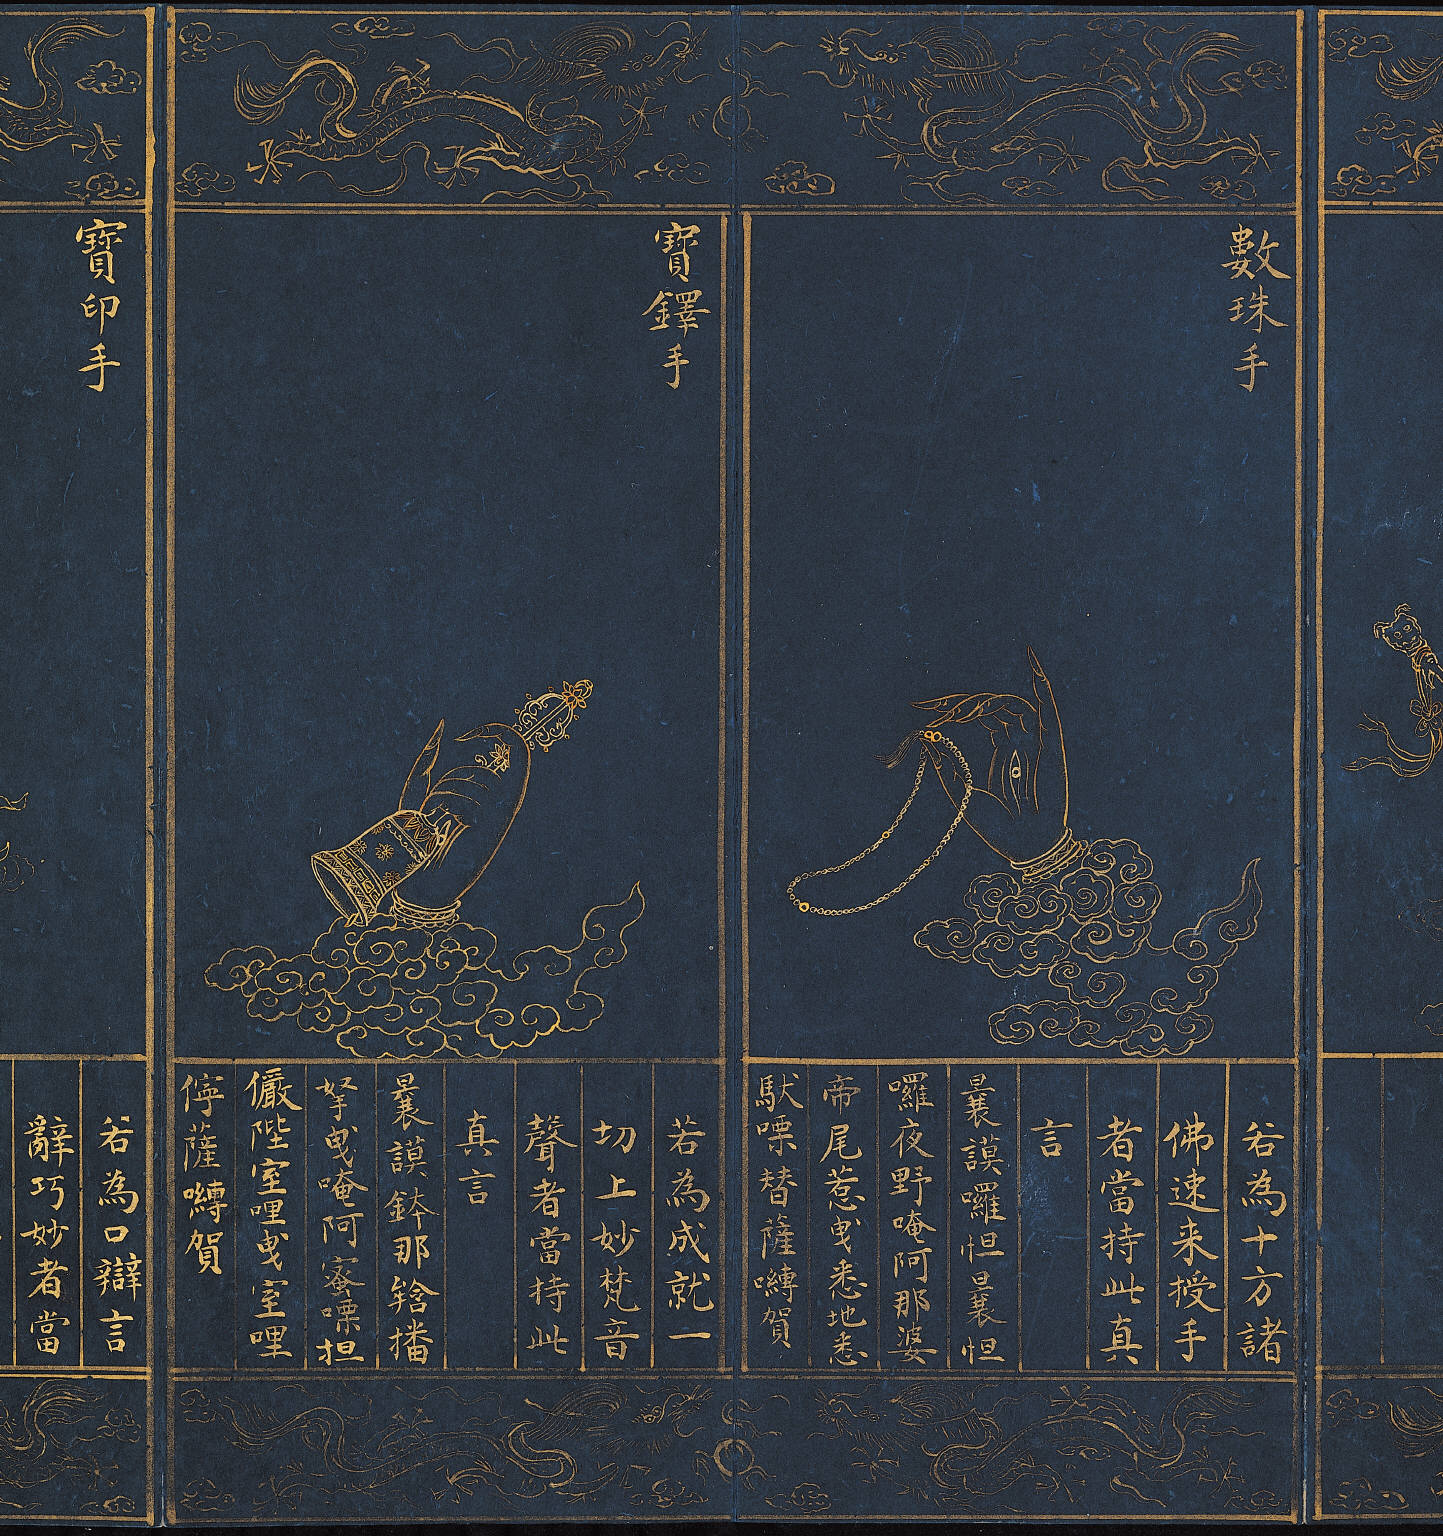 數珠手
若為十方諸
佛速来授手
者當持此真
言
曩謨囉怛曩怛
囉夜野唵阿那婆
帝尾惹曳悉地悉
馱㗚替薩嚩賀
寶鐸手
若為成就一
切上妙梵音
聲者當持此
真言
曩謨鉢那播
拏曳唵阿蜜㗚担
儼陛室哩曳室哩
儜薩嚩賀
寶印手
若為口辯言
辭巧妙者當